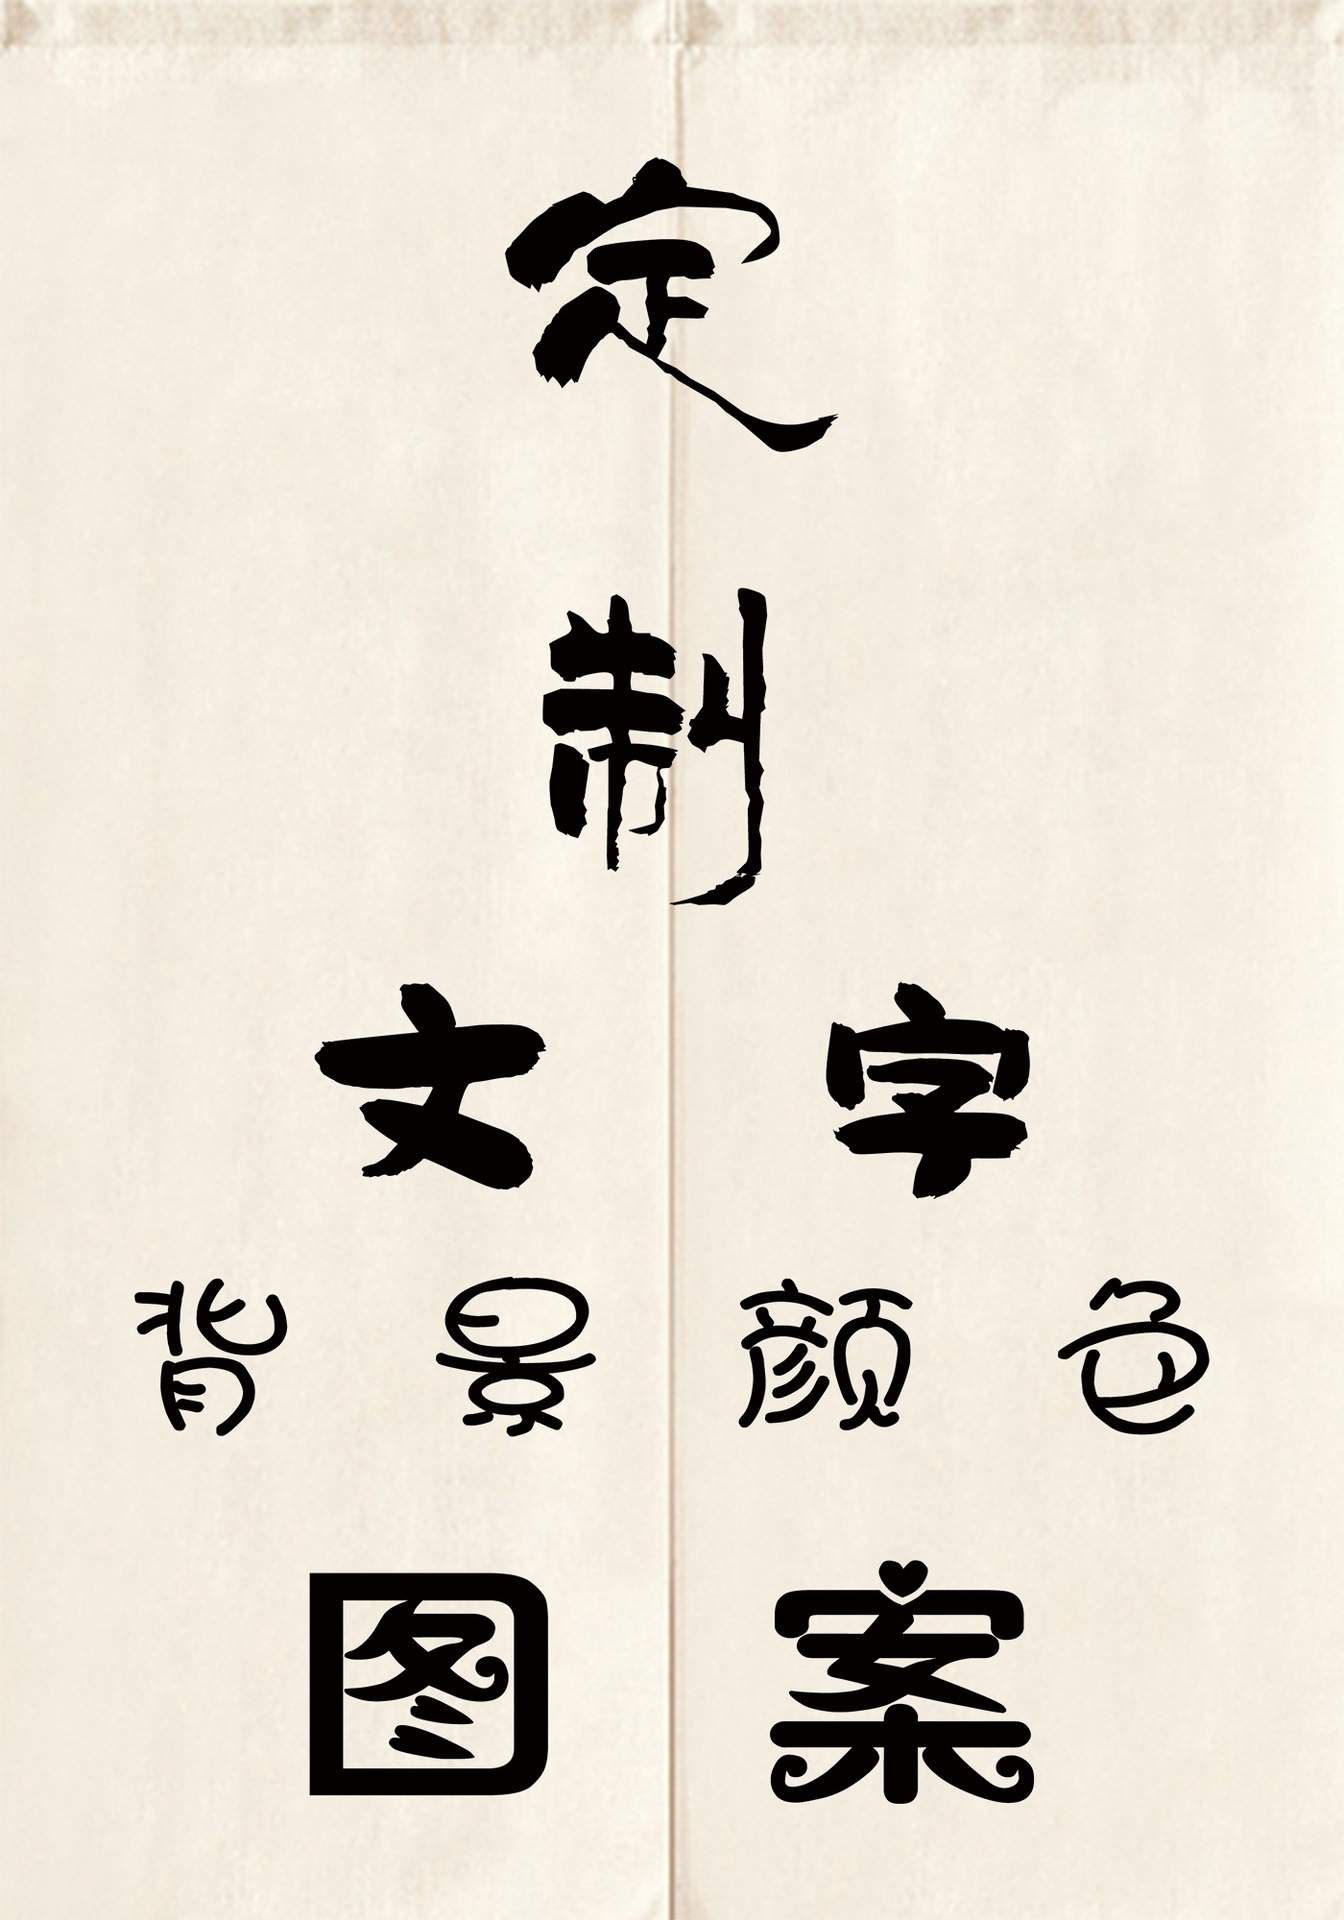 定
制
文字
背景颜色
图案